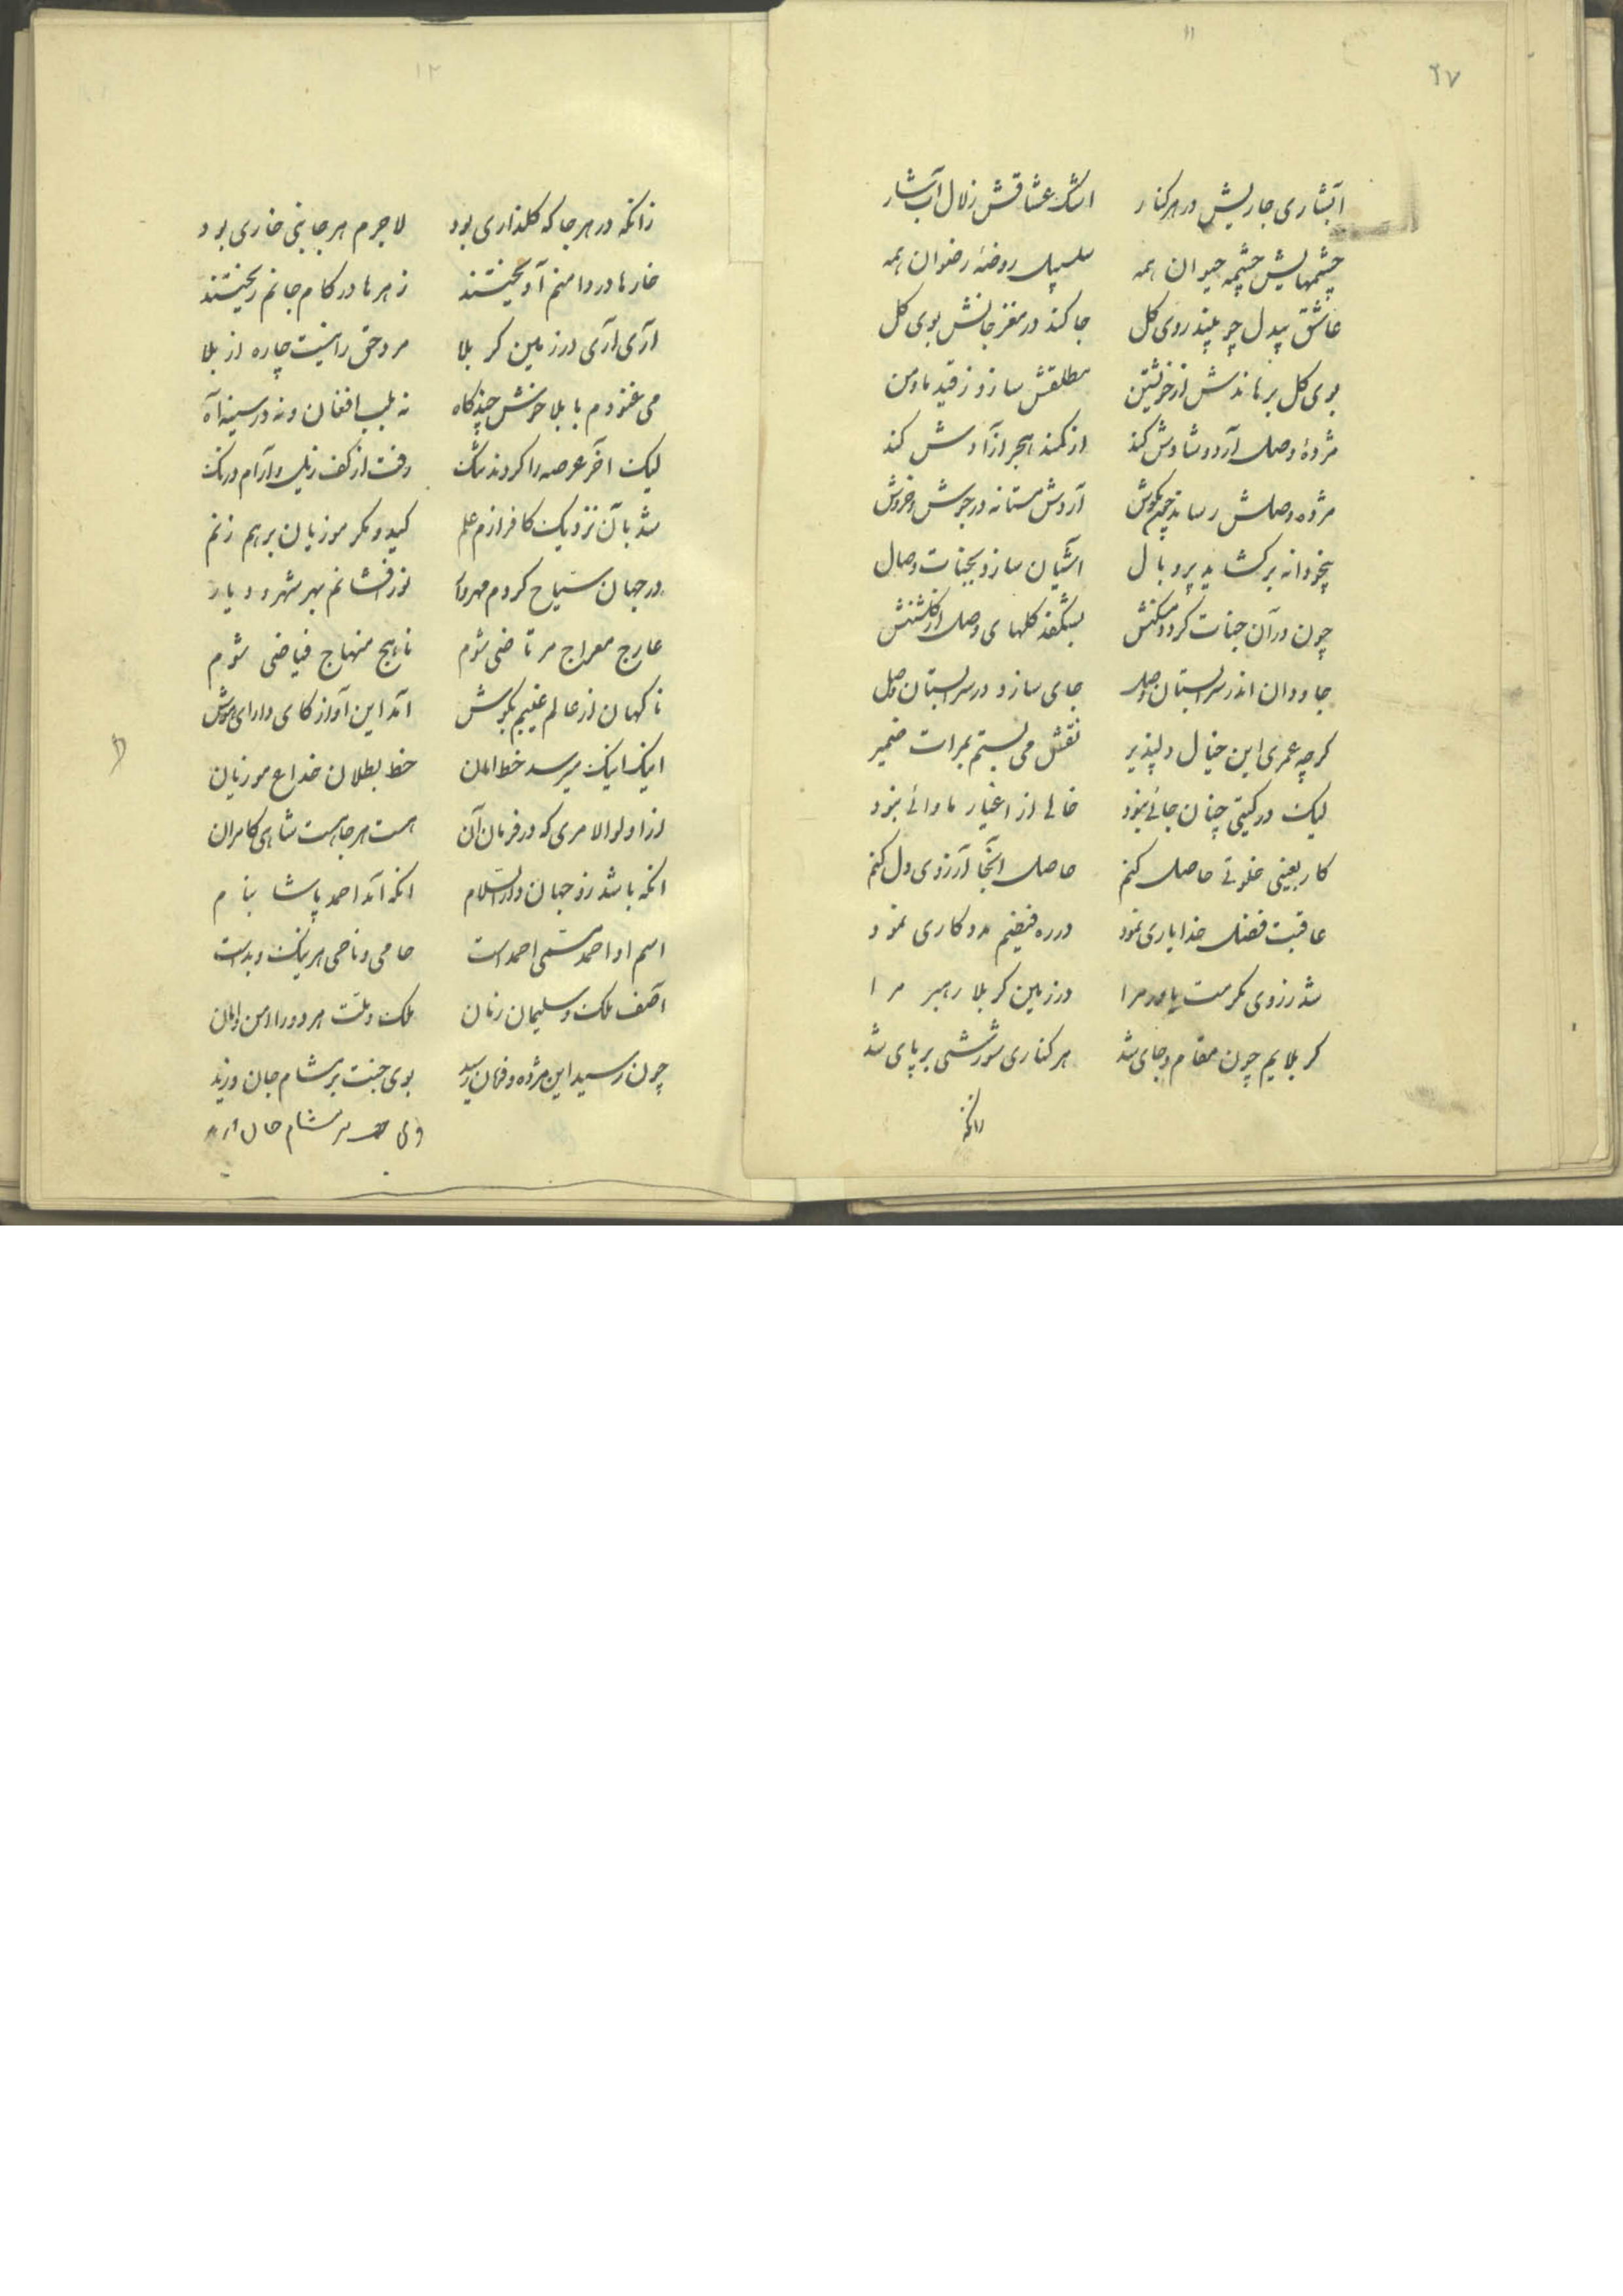 ١١
٢٧
آبشاری جاریش در هر کنار اشک عشاقش زلال آبشار
چشمهایش چشمه حیوان همه سلسبیل روضهٔ رضوان همه
عاشق بیدل چو بیند روی کل جا کند در مغز جانش بوی کل
بوی کل برهاندش از خویشتن مطلقش سازد ز قید ما و من
مژدهٔ وصل آرد و شادش کند از کمند هجر آزادش کند
مژده وصلش رساند چون بکوش آردش مستانه در جوش و خروش
بیخودانه بر کشاید پر و بال آشیان سازد بجنات وصال
چون در آن جنات کردد مسکنش بشکفد کلهای وصل از کلشنش
جاودان اندر سرابستان وصل جای سازد در سرابستان وصل
کرچه عمری این خیال دلپذیر نقش می بستم بمرات ضمیر
لیک در کیتی چنان جائی نبود خالی از اغیار ماوائی نبود
کاربعینی خلوتی حاصل کنم حاصل آنجا آرزوی دل کنم
عاقبت فضل خدا یاری نمود در ره فیضم مددکاری نمود
شد ز روی مکرمت یاور مرا در زمین کربلا رهبر مرا
کربلایم چون مقام و جای شد هر کناری شورشی بر پای شد
زانکه
١٢
زانکه در هر جا که کلذاری بود لاجرم هر جا بنی خاری بود
خارها در دامنم آویختند زهرها در کام جانم ریختند
آری آری در زمین کربلا مرد حق را نیست چاره از بلا
می غنودم با بلا خوش چند کاه نه بلب افغان و نه در سینه آه
لیک آخر عرصه را کردند تنک رفت از کف ذیل آرام و درنک
شد بآن نزدیک کافرازم علم کید و مکر موزیان برهم زنم
در جهان سیاح کردم مهروار نور افشانم بهر شهر و دیار
عارج معراج مرتاضی شوم ناهج منهاج فیاضی شوم
ناکهان از عالم غیبم بکوش آمد این آواز کای دارای هوش
اینک اینک میرسد خط امان خط بطلان خداع موزیان
از اولوالامری که در فرمان آن هست هر جا هست شاهی کامران
آنکه باشد زو جهان دارالسلام آنکه آمد احمد پاشا بنام
اسم او احمد مسمی احمد است حامی و ناحی هر نیک و بد است
آصف ملک و سلیمان زمان ملک و ملت هر دو را امن و امان
چون رسید این مژده و فرمان رسید بوی جنت بر مشام جان وزید
بر مشام جان